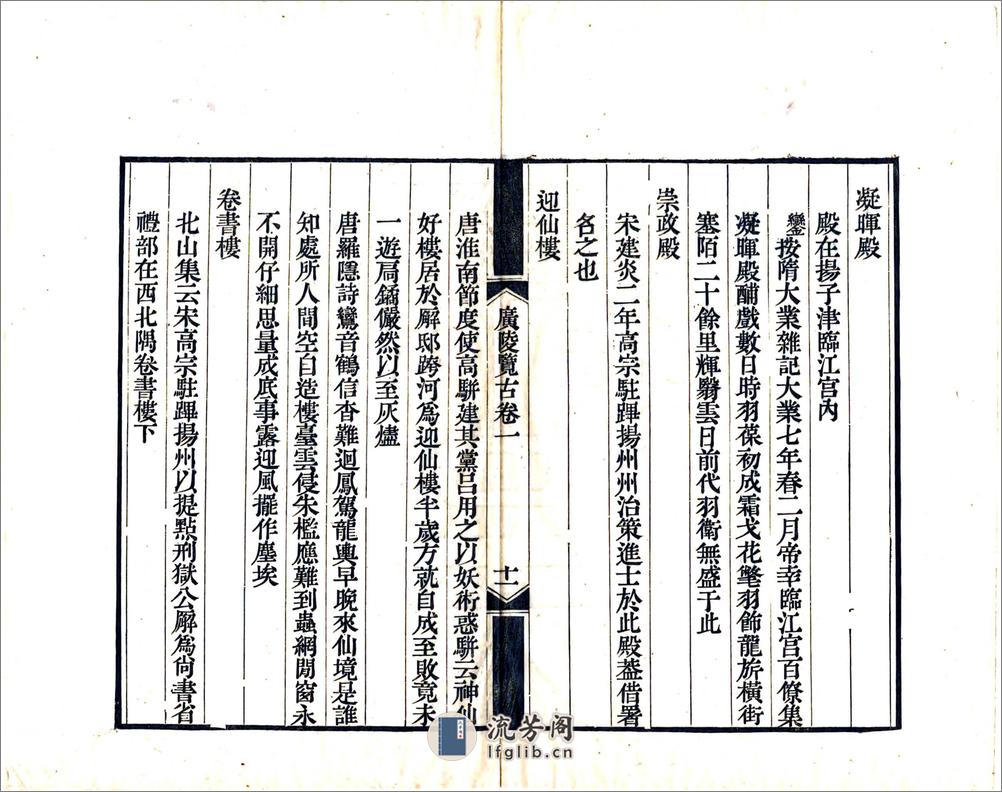 凝暉殿
殿在揚子津臨江宫內
鑾按隋大業雜記大業七年春二月帝幸臨江宫百僚集
凝暉殿酺戲數日時羽葆初成霜戈花氅羽飾龍旂橫街
塞陌二十餘里輝翳雲日前代羽衛無盛于此
崇政殿
宋建炎二年高宗駐蹕揚州州治策進士於此殿葢借署
名之也
迎仙樓
廣陵覽古卷一
十一
唐淮南節度使高駢建其黨呂用之以妖術惑駢云神仙
好樓居於廨邸跨河爲迎仙樓半歲方就自成至敗竟未
一遊扃鐍儼然以至灰燼
唐羅隱詩鸞音鶴信杳難迴鳳駕龍輿早晚來仙境是誰
知處所人間空自造樓臺雲侵朱檻應難到蟲網閒窗永
不開仔細思量成底事露迎風擺作塵埃
卷書樓
北山集云宋高宗駐蹕揚州以提點刑獄公廨爲尙書省
禮部在西北隅卷書樓下
流芳阁
lfglib.cn